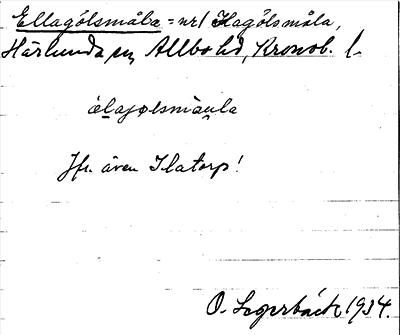 Ellagölsmåla = nr 1 Flagölsmåla,
Härlunda sn, Allbo hd, Kronob. l.
èlajølsmåula
Jfr. även Ilatorp!
O. Lagerbäck 1934.